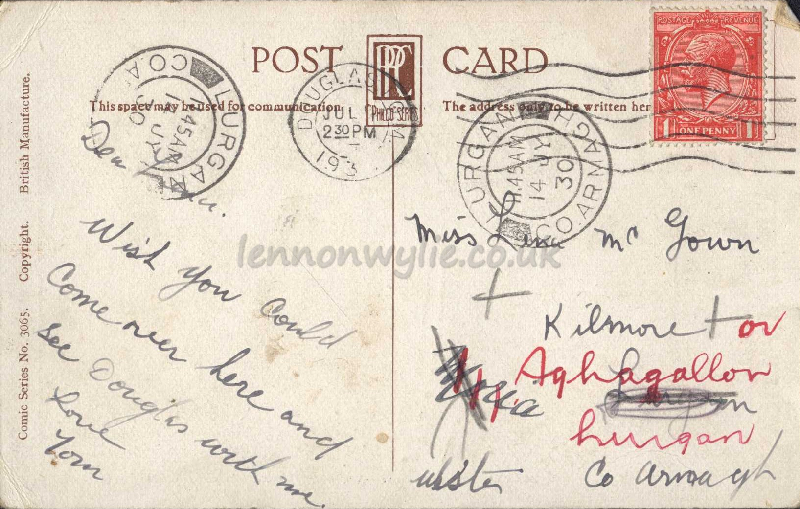 POST CARD
PPC
PHILCO SERIES
This space may be used for communication
The address only to be written her
POSTAGE REVENUE
1 ONE PENNY 1
DOUGLAS I.O.M
JUL
2 30 PM
193
LURGAN CO.A
1.45AM
14 JY
30
LURGAN CO.ARMAGH
11.45AM
14 JY
30
British Manufacture.
Copyright.
Comic Series No. 3065.
Dear
Wish you could
Come over here and
see Douglas with me.
Love
Tom
Miss Lena Mc Gown
Kilmore + or
Aghagallon
Lurgan
Ulster Co Armagh
lennonwylie.co.uk